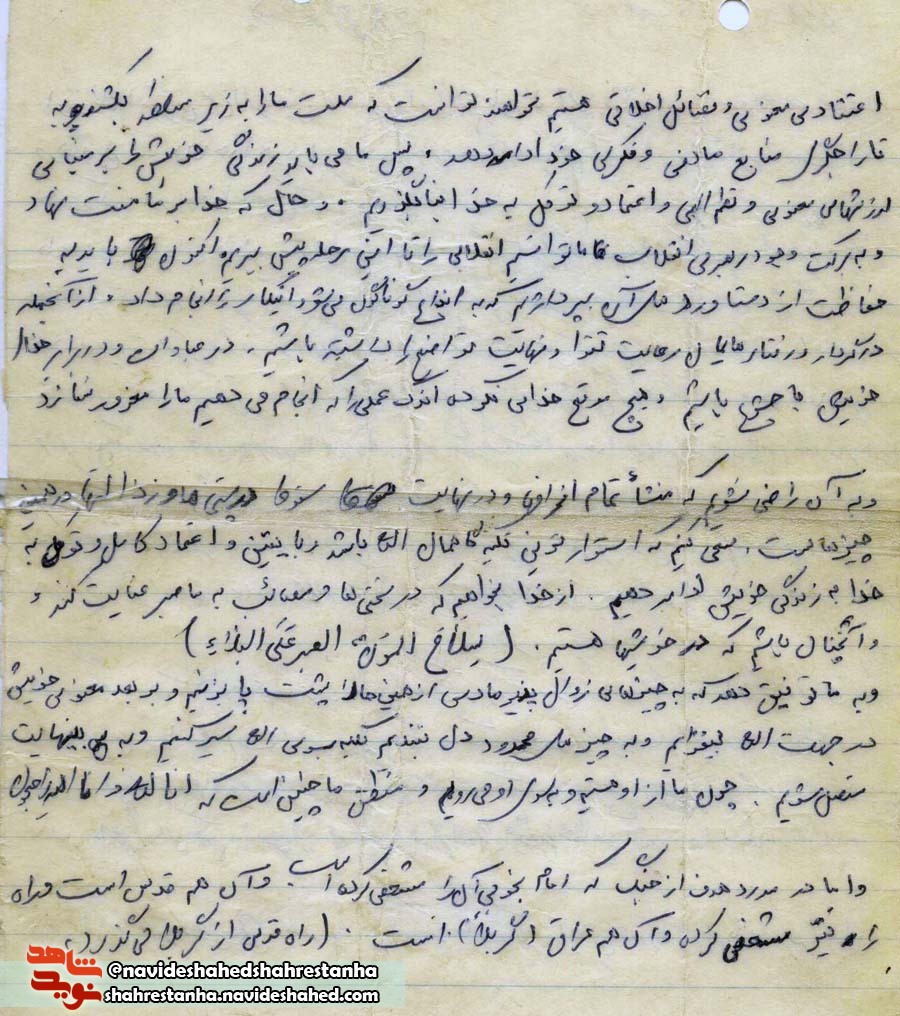 اعتقادی معنوی و فضائل اخلاقی هستیم نخواهند توانست که ملت ما را به زیر سلطه بکشند و به
تاراجگری منابع مادی و فکری خود ادامه دهد، پس ما می باید زندگی خویش را بر مبنای
ارزشهای معنوی و نظم الهی و اعتماد و توکل به خدا بنا بگذاریم. و حال که خدا بر ما منت نهاد
و به برکت وجود رهبری انقلاب ما توانستیم انقلاب را تا این مرحله پیش ببریم اکنون باید به
حفاظت از دستاوردهای آن بپردازیم که به انواع گوناگون می شود اینکار را انجام داد، از آنجمله
در کردار و رفتارمان رعایت تقوا و نهایت تواضع را داشته باشیم. در عبادات و در برابر خدای
خویش خاشع باشیم و هیچ موقع خدای نکرده اندک عملی را که انجام می دهیم ما را مغرور نسازد
و به آن راضی شویم که منشأ تمام انحرافها و در نهایت سقوط در پستی ها و رذالتها در همین
چیزهاست. سعی کنیم که استوارترین تکیه گاهمان الله باشد و با یقین و اعتماد کامل و توکل به
خدا به زندگی خویش ادامه دهیم. از خدا بخواهیم که در سختی ها و مصائب به ما صبر عنایت کند و
و آنچنان باشیم که در خوشیها هستیم. ( سلاح المؤمن الصبر علی البلاء )
و به ما توفیق دهد که به چیزهای زوال پذیر مادی از همین حالا پشت پا بزنیم و بر بعد معنوی خویش
در جهت الله بیفزائیم و به چیزهای محدود دل نبندیم بلکه بسوی الله سیر کنیم و به بینهایت
متصل شویم. چون ما از او هستیم و بسوی او می رویم و منطق ما چنین است که انا لله و انا الیه راجعون
و اما در مورد هدف از جنگ که امام بخوبی آن را مشخص کرده است و آن هم قدس است و راه
را نیز مشخص کرده و آن هم عراق (کربلا) است. (راه قدس از کربلا می گذرد)
شاهد
نوید
@navideshahedshahrestanha
shahrestanha.navideshahed.com